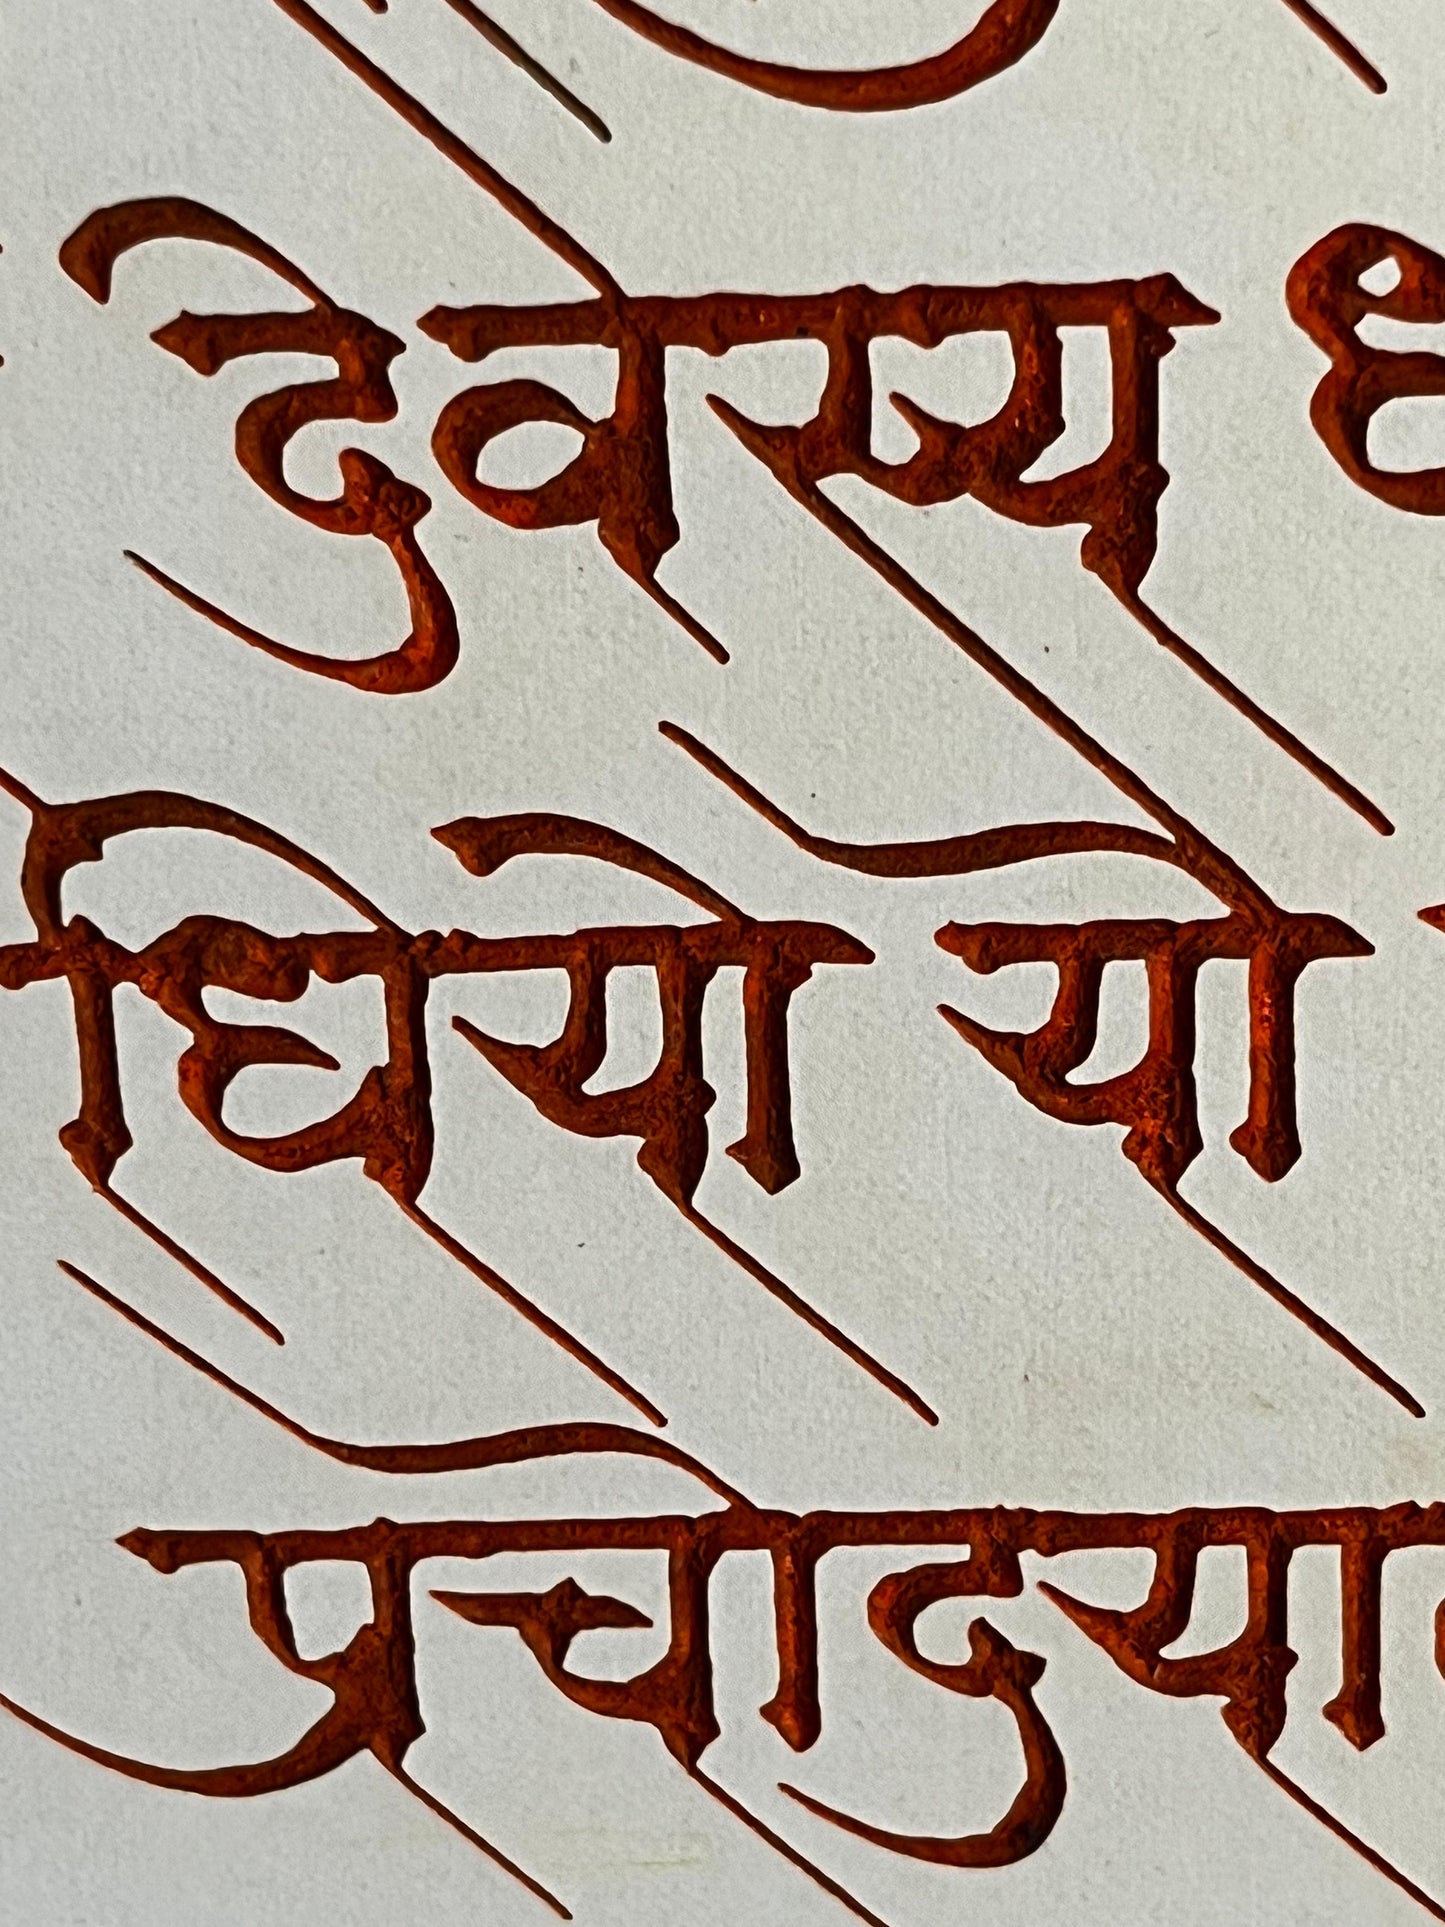 देवस्य
धियो यो
प्रचोदया